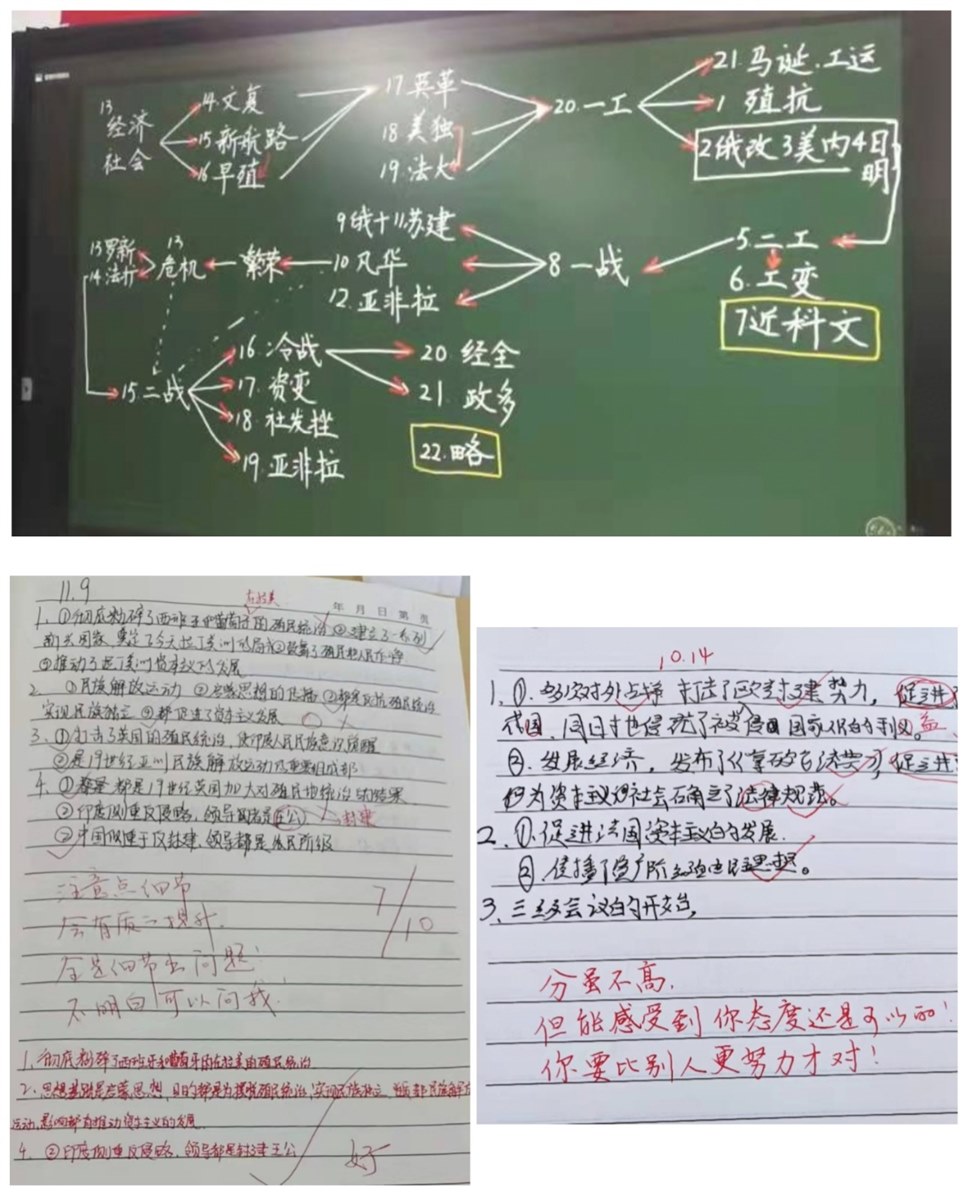 13 14.文复 17.英革 21.马诞.工运
经济 15新航路 18美独 20.一工 1 殖抗
社会 16早殖 19.法大 2俄改3美内4日
明
9俄十11苏建 5二工
13罗新 13
14法扩 危机 繁荣 10凡华 8一战 6.工变
12.亚非拉 7近科文
16.冷战 20.经全
15.二战 17.资变 21.政多
18.社发挫
19.亚非拉 22.略
11.9
在拉美
年 月 日 第 页
1.①彻底粉碎了西班牙和葡萄牙的殖民统治②建立了一系列
④推动了拉丁美洲资本主义的发展
2 ①民族解放运动 ②启蒙思想的传播 ③都是反抗殖民统治
实现民族独立 ④都促进了资本主义发展
3.①打击了英国的殖民统治,使印度人民民族意识觉醒
②是19世纪亚洲民族解放运动的重要组成部分
4.①都是 都是19世纪英国加大对殖民地统治的结果
②印度侧重反侵略,领导阶级是王公 封建
③中国侧重于反封建,领导者是农民阶级
注意点细节
会有质的提升.
全是细节出问题!
不明白可以问我!
7/10
1.彻底粉碎了西班牙和葡萄牙的在拉美的殖民统治
运动,影响都有推动资本主义的发展.
4.②印度侧重反侵略,领导都是封建王公
好
10.14
1.①.多次对外战争 打击了欧封建势力,促进了
国家人民的利 益
②.发展经济,发布了《拿破仑法典》,促进
仍为资本主义的社会确立了法律规范。
2.①.促进法国资本主义的发展.
②.传播了资产阶级 思想。
3.三级会议的的开始.
分虽不高.
但能感受到你态度还是可以的!
你要比别人更努力才对!